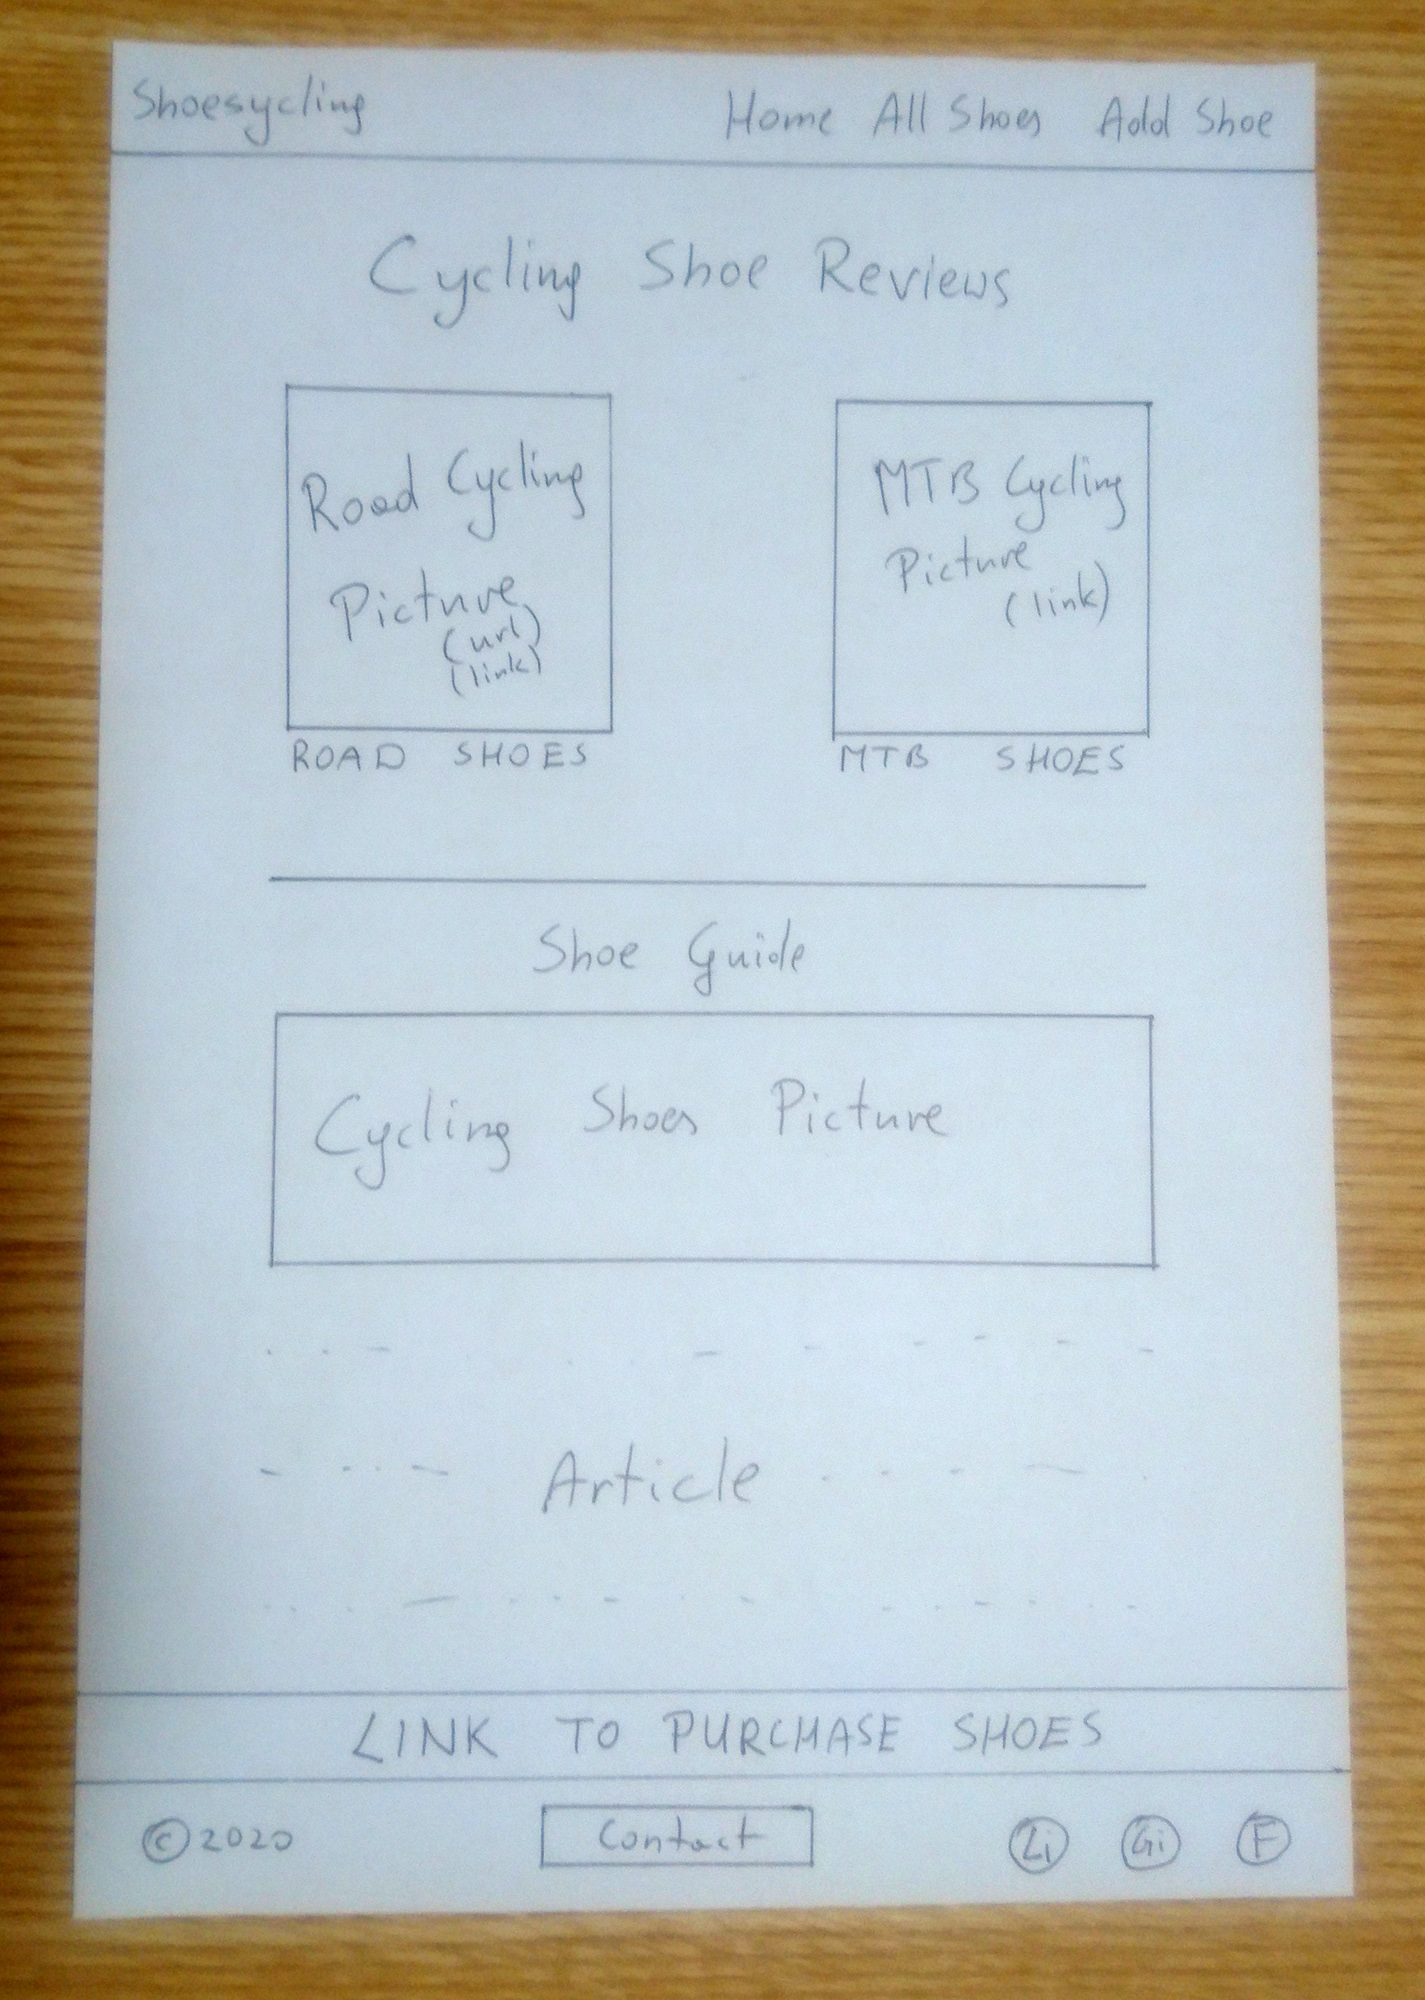 Shoesycling Home All Shoes Add Shoe
Cycling Shoe Reviews
Road Cycling
Picture
(url)
(link)
ROAD SHOES
MTB Cycling
Picture
(link)
MTB SHOES
Shoe Guide
Cycling Shoes Picture
Article
LINK TO PURCHASE SHOES
© 2020 Contact Li Gi F